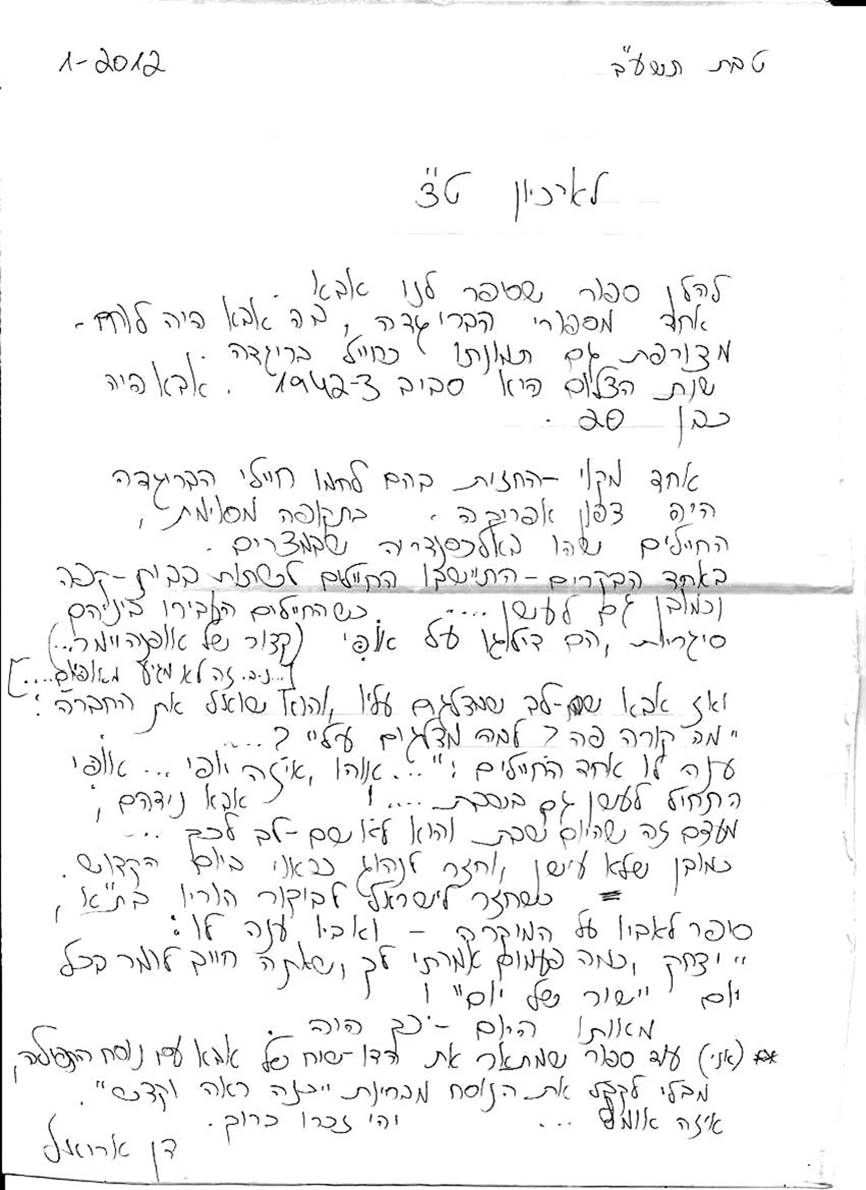 טבת תשע"ב 1-2012
לארכיון ט"צ
להלן ספור שסיפר לנו אבא.
אחד מספורי הבריגדה, בה אבא היה לוחם-
מצורפת גם תמונתו כחייל בריגדה.
שנת הצלום היא סביב 1942-3. אבא היה
כבן 20.
אחד מקוי-החזית בהם לחמו חיילי הבריגדה
היה צפון אפריקה. בתקופה מסוימת,
החיילים שהו באלכסנדריה שבמצרים.
באחד הבקרים-התיישבו החיילים לשתות בבית-קפה
וכמובן גם לעשן..... כשהחיילים העבירו ביניהם
סיגריות, הם דילגו על אופי (קצור של אופנהיימר...)
[...נ.ב. זה לא מגיע מאופיום....]
ואז אבא שם-לב שמדלגים עליו, והוא שואל את החברה:
"מה קורה פה? למה מדלגים עליי?....
ענה לו אחד החיילים: "...אוהו, איזה יופי... אופי
התחיל לעשן גם בשבת....! אבא נידהם,
מעצם זה שהיום שבת והוא לא שם-לב לכך...
כמובן שלא עישן, וחזר לנהוג כראוי ביום הקדוש.
= כשחזר לישראל לביקור הוריו בת"א,
סיפר לאביו על המיקרה - ואביו ענה לו:
"יצחק, כמה פעמים אמרתי לך, שאתה חייב לומר בכל
יום "שיר של יום"!
מאותו היום - כך היה.
** (אני) עוד ספור שמתאר את הדו-שיח של אבא עם נוסח התפילה,
מבלי לקבל את הנוסח מבחינת "כזה ראה וקדש".
איזה אומץ... יהי זכרו ברוך.
דן אריאל